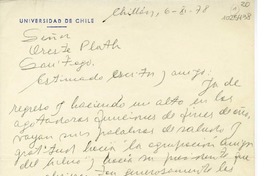 UNIVERSIDAD DE CHILE
Chillán, 6-I-78
Señor
Oreste Plath
Santiago.
Estimado escritor y amigo: Ya de
regreso y haciendo un alto en las
agotadoras funciones de fines de año,
vayan mis palabras de saludo y
gratitud hacia la agrupación Amigos
del Libro y hacia su presidente que